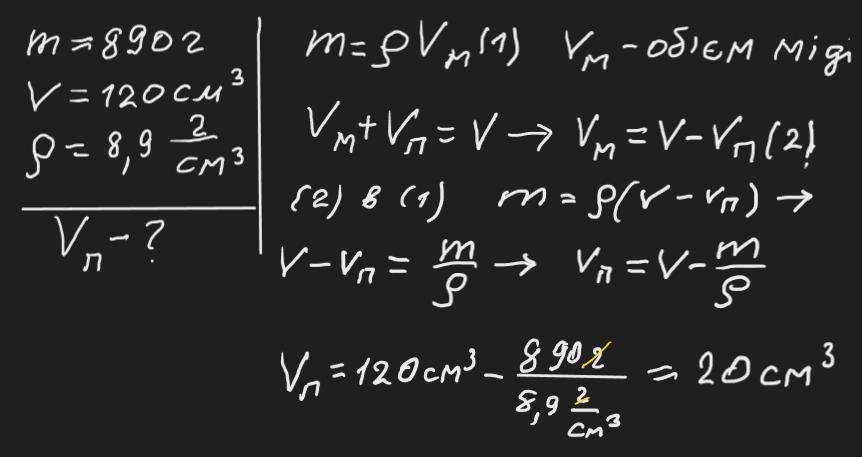 m = 890 г
V = 120 см³
ρ = 8,9 г/см³
Vп - ?
m = ρVм (1) Vм - обієм міді
Vм + Vп = V → Vм = V - Vп (2)
(2) в (1) m = ρ(V - Vп) →
V - Vп = m/ρ → Vп = V - m/ρ
Vп = 120 см³ - 890 г / 8,9 г/см³ = 20 см³